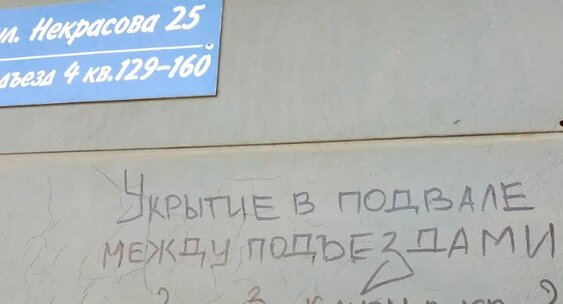 ул. Некрасова 25
одъезд 4 кв. 129-160
УКРЫТИЕ В ПОДВАЛЕ
МЕЖДУ ПОДЪЕЗДАМИ